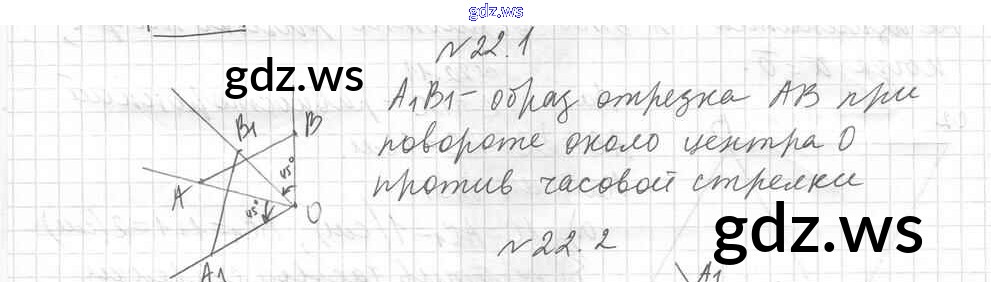 gdz.ws
№22.1
gdz.ws
A1B1 - образ отрезка AB при
повороте около центра O
против часовой стрелки
B1 B
45°
A
45° O
A1
gdz.ws
№22.2
A1